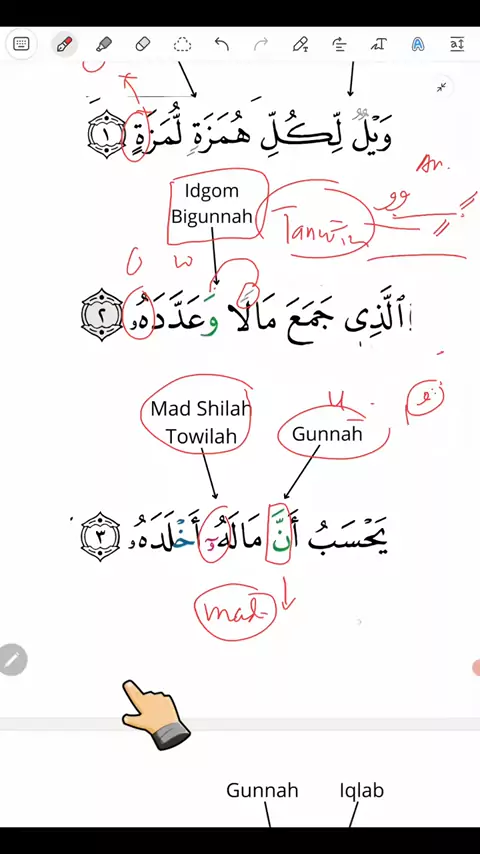 وَيْلٌ لِّكُلِّ هُمَزَةٍ لُّمَزَةٍ ١
Idgom
Bigunnah
Tanwin
An.
وو
U W
ٱلَّذِى جَمَعَ مَالًا وَعَدَّدَهُۥ ٢
Mad Shilah
Towilah
Gunnah
يَحْسَبُ أَنَّ مَالَهُۥٓ أَخْلَدَهُۥ ٣
mad
Gunnah Iqlab